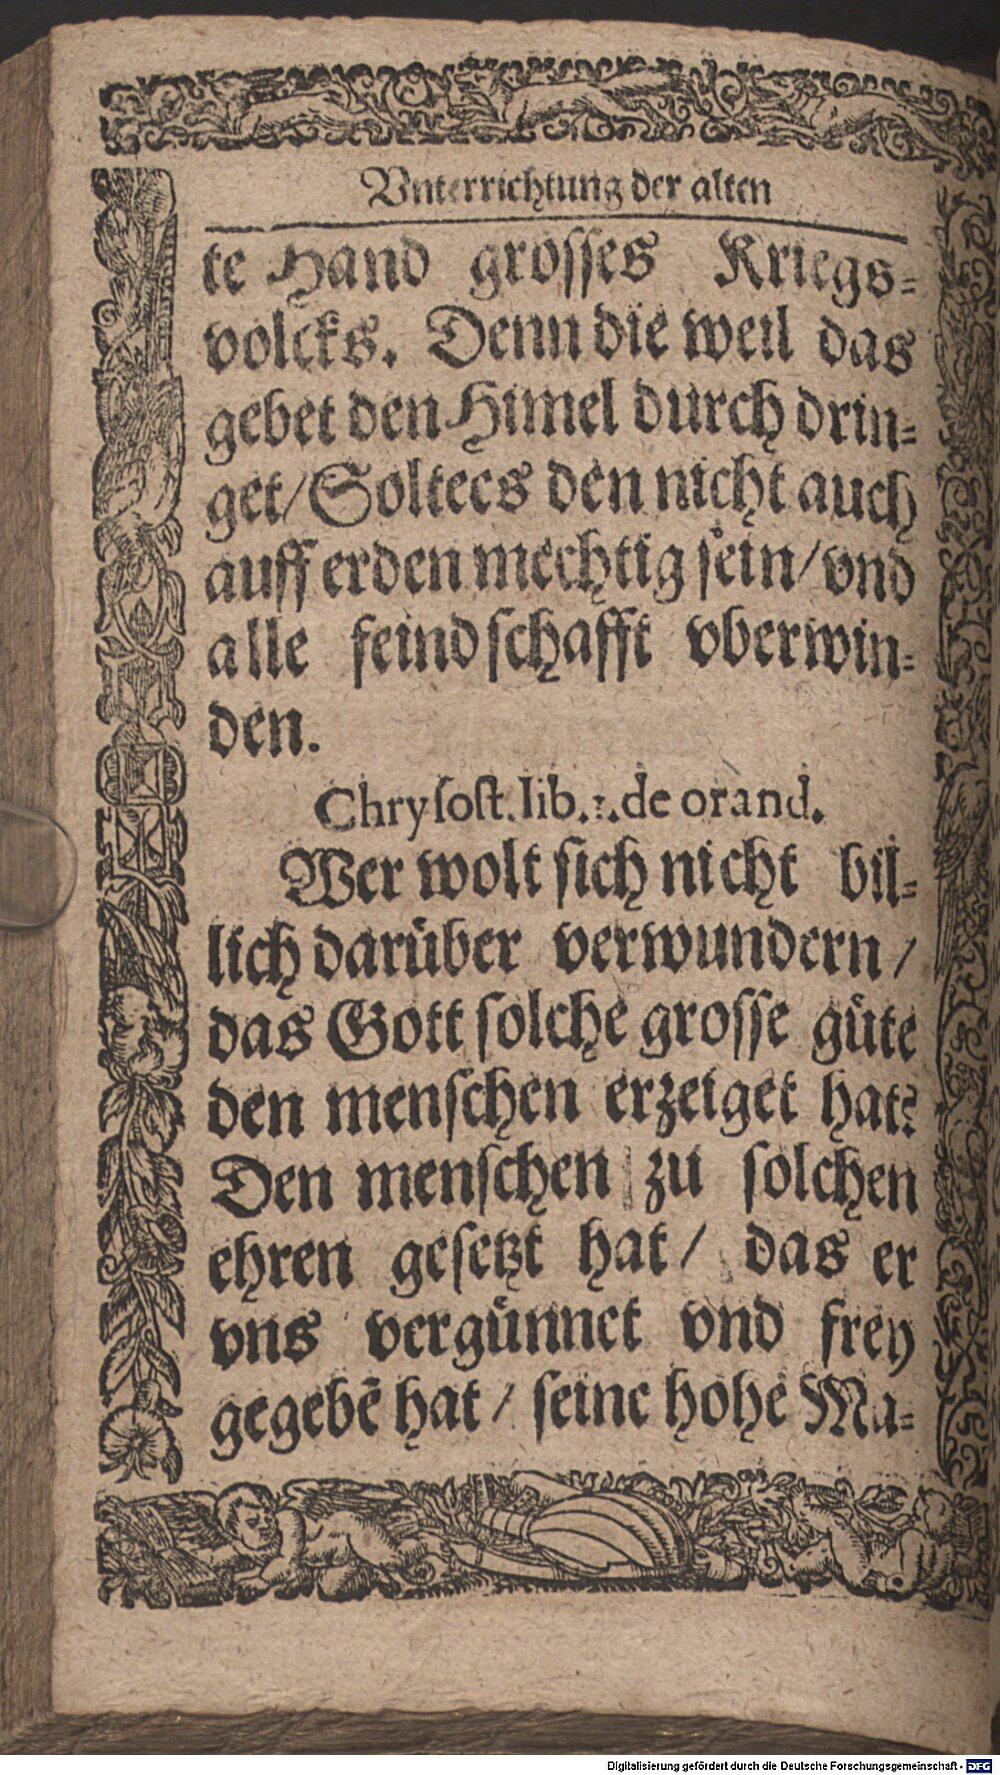 Vnterrichtung der alten
te Hand grosses Kriegs-
volcks. Denn die weil das
gebet den Himel durch drin-
get/ Soltees den nicht auch
auff erden mechtig sein/ vnd
alle feindschafft vberwin-
den.
Chrysost. lib. de orand.
Wer wolt sich nicht bil-
lich darüber verwundern/
das Gott solche grosse güte
den menschen erzeiget hat?
Den menschen zu solchen
ehren gesetzt hat/ das er
vns vergünnet vnd frey
gegebē hat/ seine hohe Ma-
Digitalisierung gefördert durch die Deutsche Forschungsgemeinschaft - DFG